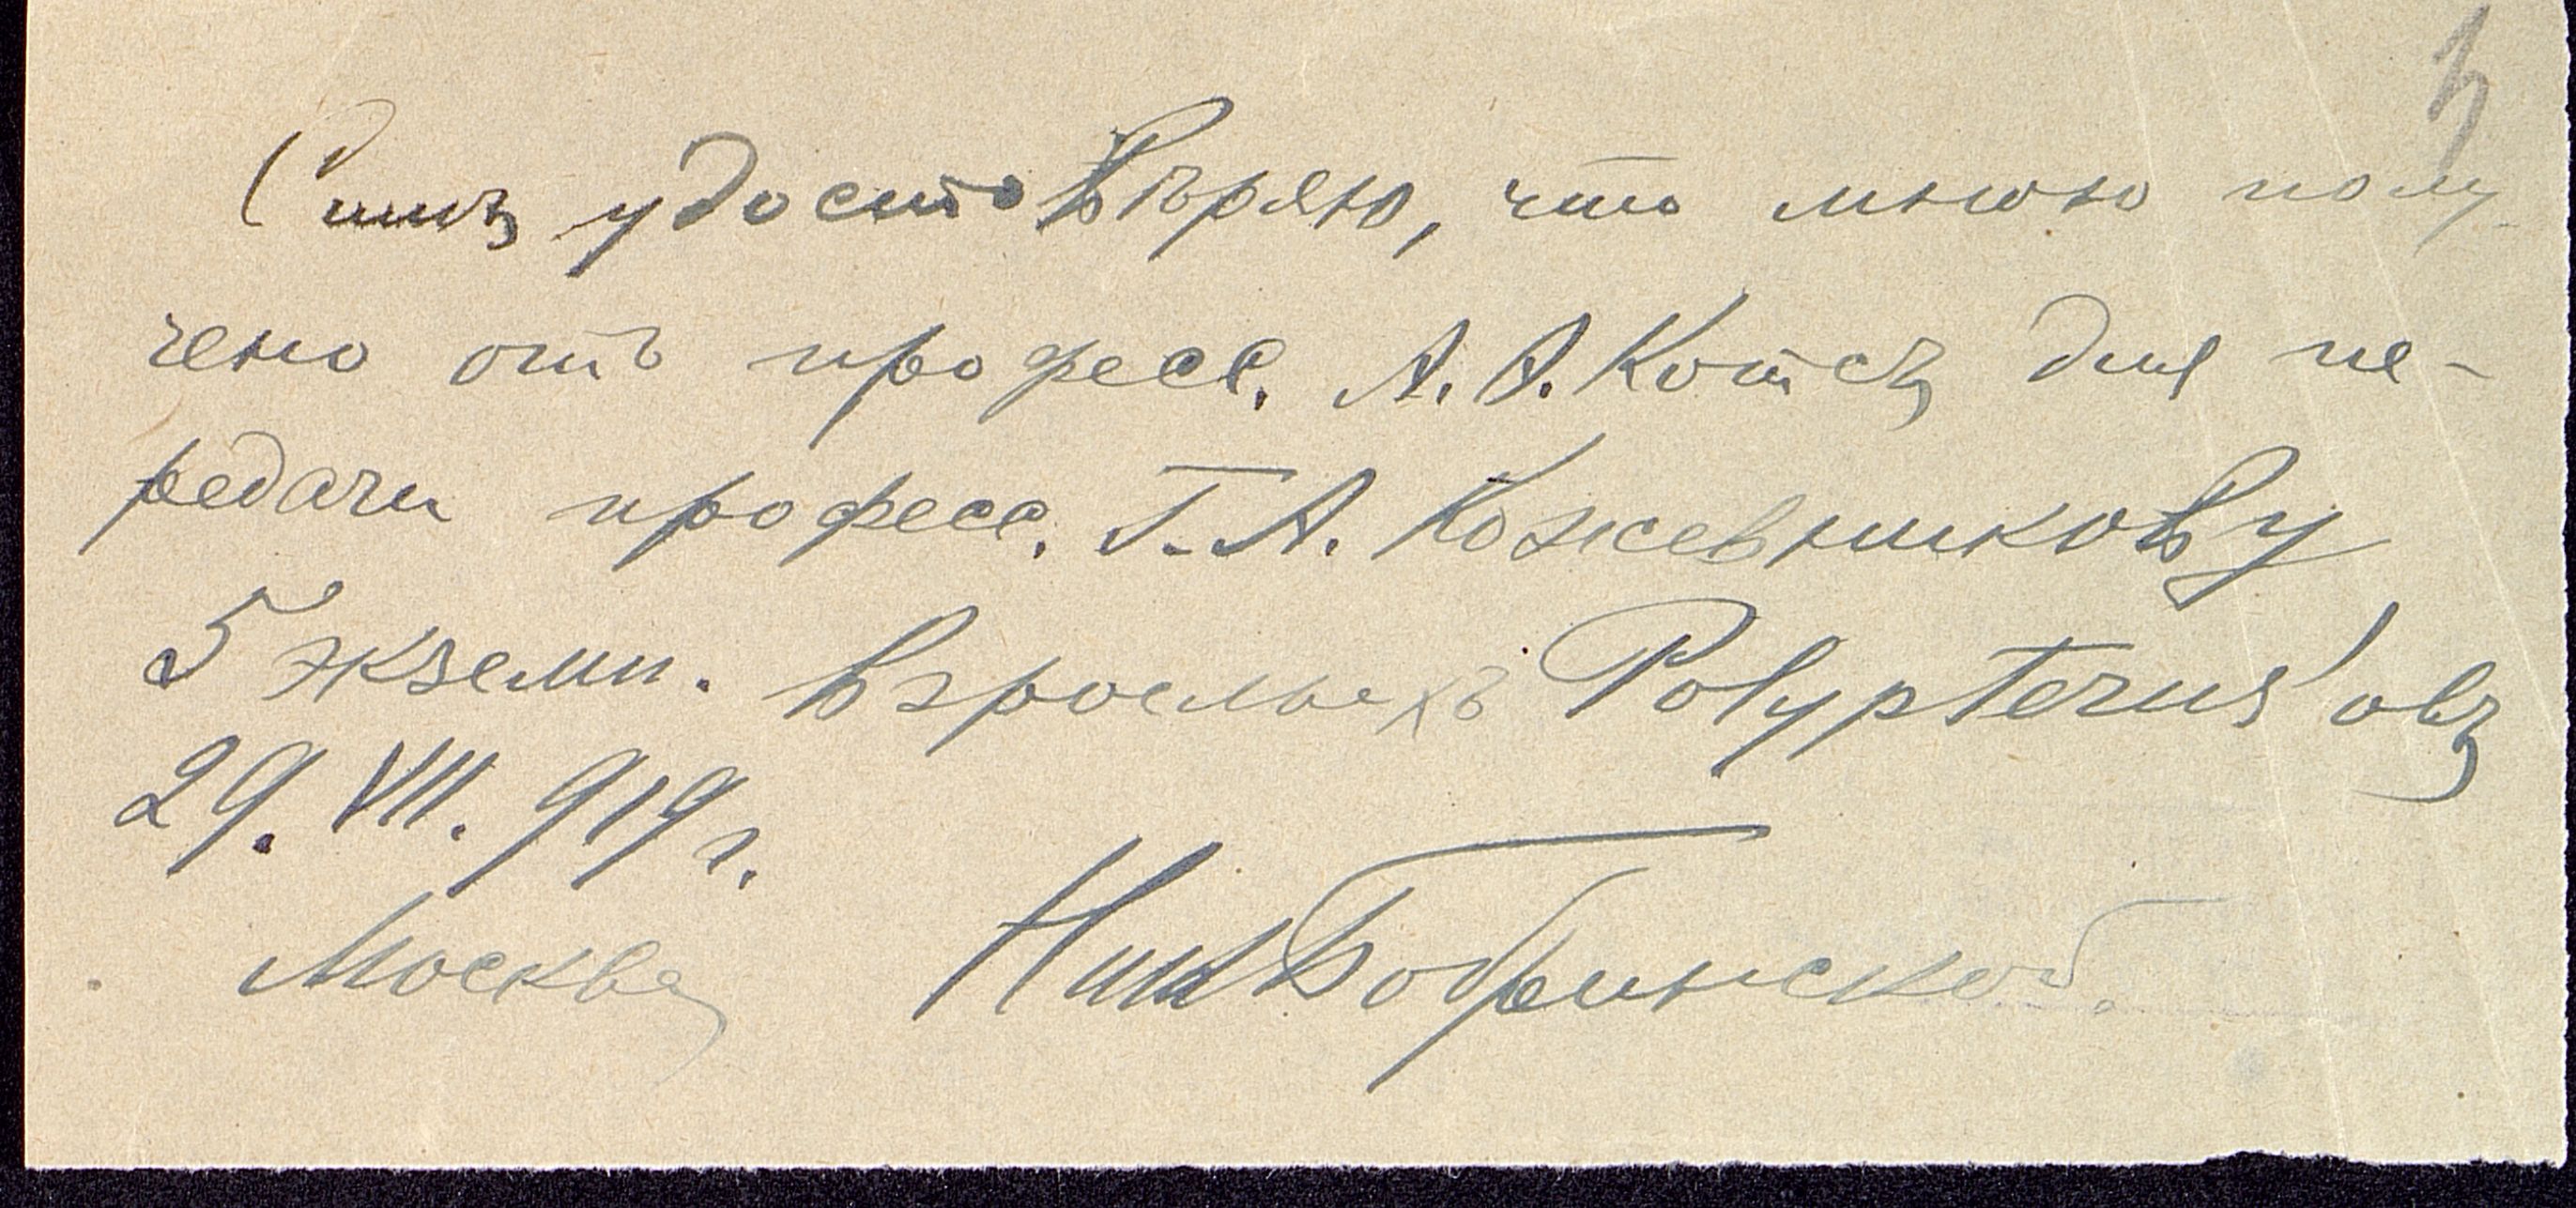 Симъ удостовѣряю, что мною полу-
чено отъ професс. А. Ф. Котсъ для пе-
редачи професс. Г. А. Кожевникову
5 экземп. взрослыхъ Polypterus'овъ
29. VII. 919 г.
Москва
Ник Бобринской.